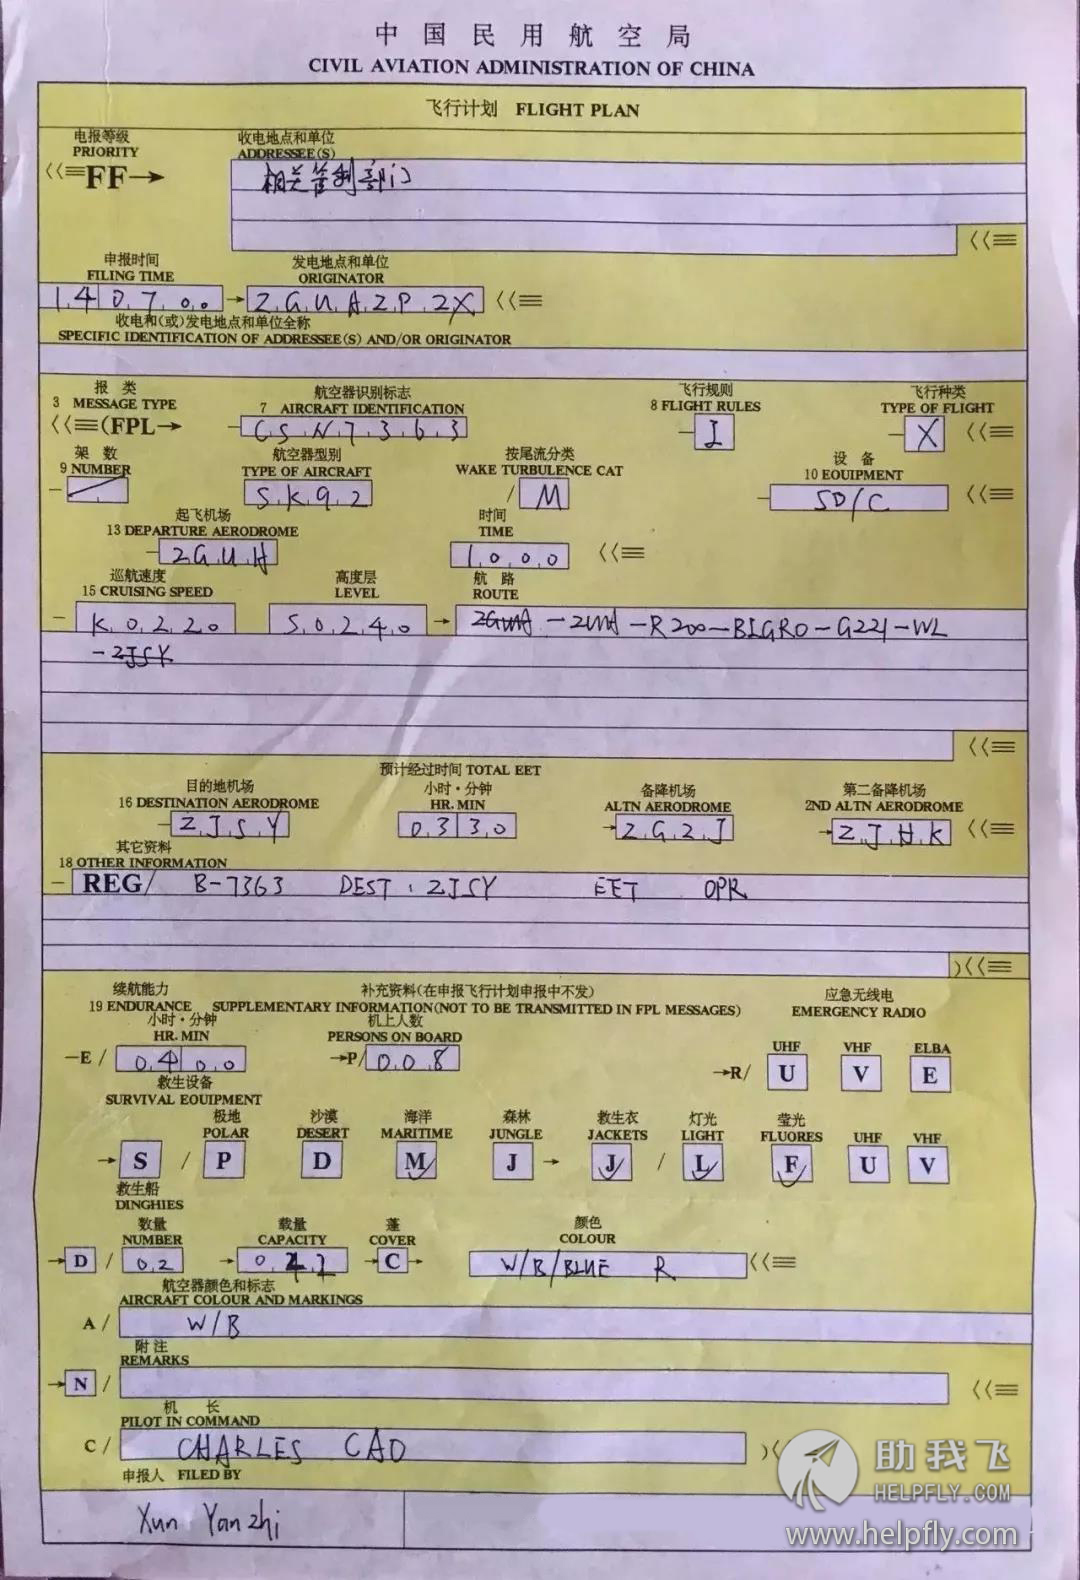 中国民用航空局
CIVIL AVIATION ADMINISTRATION OF CHINA
飞行计划 FLIGHT PLAN
电报等级 收电地点和单位
PRIORITY ADDRESSEE(S)
<<≡FF→ 相关管制部门
<<≡
申报时间 发电地点和单位
FILING TIME ORIGINATOR
140700 → ZGUAZPZX <<≡
收电和(或)发电地点和单位全称
SPECIFIC IDENTIFICATION OF ADDRESSEE(S) AND/OR ORIGINATOR
报类 航空器识别标志 飞行规则 飞行种类
3 MESSAGE TYPE 7 AIRCRAFT IDENTIFICATION 8 FLIGHT RULES TYPE OF FLIGHT
<<≡(FPL→ - CSN7363 - I - X <<≡
架数 航空器型别 按尾流分类 设备
9 NUMBER TYPE OF AIRCRAFT WAKE TURBULENCE CAT 10 EOUIPMENT
- SK92 / M - SD/C <<≡
起飞机场 时间
13 DEPARTURE AERODROME TIME
- ZGUH 1000 <<≡
巡航速度 高度层 航路
15 CRUISING SPEED LEVEL ROUTE
- K0220 S0240 → -ZUH-R200-BIGRO-G221-WL
-ZJSY
<<≡
预计经过时间 TOTAL EET
目的地机场 小时·分钟 备降机场 第二备降机场
16 DESTINATION AERODROME HR. MIN ALTN AERODROME 2ND ALTN AERODROME
- ZJSY 0330 → ZGZJ → ZJHK <<≡
其它资料
18 OTHER INFORMATION
- REG/ B-7363 DEST: ZJSY EET OPR
)<<≡
续航能力 补充资料(在申报飞行计划申报中不发) 应急无线电
19 ENDURANCE SUPPLEMENTARY INFORMATION(NOT TO BE TRANSMITTED IN FPL MESSAGES) EMERGENCY RADIO
小时·分钟 机上人数
HR. MIN PERSONS ON BOARD UHF VHF ELBA
-E/ 0400 →P/ 008 →R/ U V E
救生设备
SURVIVAL EOUIPMENT
极地 沙漠 海洋 森林 救生衣 灯光 莹光
POLAR DESERT MARITIME JUNGLE JACKETS LIGHT FLUORES UHF VHF
→ S / P D M J → J / L F U V
救生船
DINGHIES
数量 载量 蓬 颜色
NUMBER CAPACITY COVER COLOUR
→ D / 02 → → C → W/B/BLUE R <<≡
航空器颜色和标志
AIRCRAFT COLOUR AND MARKINGS
A / W/B
附注
REMARKS
→ N / <<≡
机长
PILOT IN COMMAND
C / CHARLES CAO )<
申报人 FILED BY
Xun Yanzhi
助我飞
HELPFLY.COM
www.helpfly.com